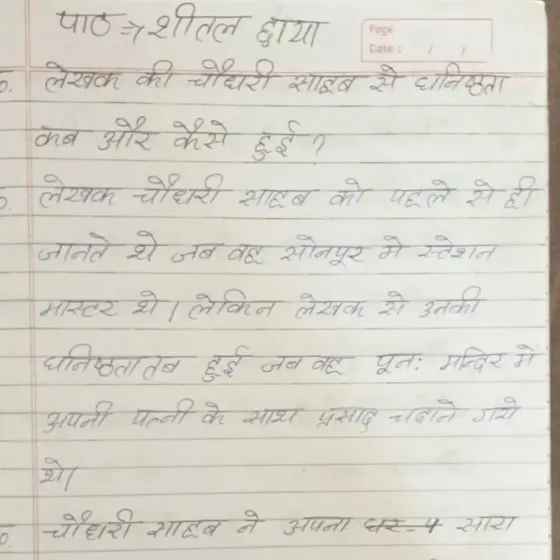 पाठ ⇒ शीतल छाया
Page
Date : / /
लेखक की चौधरी साहब से घनिष्ठता
कब और कैसे हुई ?
लेखक चौधरी साहब को पहले से ही
जानते थे जब वह सोनपूर मे स्टेशन
मास्टर थे। लेकिन लेखक से उनकी
घनिष्ठता तब हुई जब वह पून: मन्दिर में
अपनी पत्नी के साथ प्रसाद चढाते गये
थे।
चौधरी साहब ने अपना घर सारा